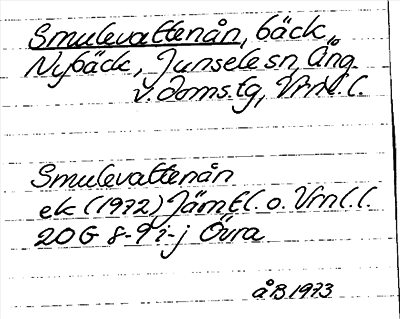 Smulevattenån, bäck,
Nybäck, Junsele sn, Ång.
v. doms.tg, Vrnl.l.
Smulevattenån
ek (1972) Jämtl. o. Vrnl.l.
20G 8-9 i-j Övra
åB 1973